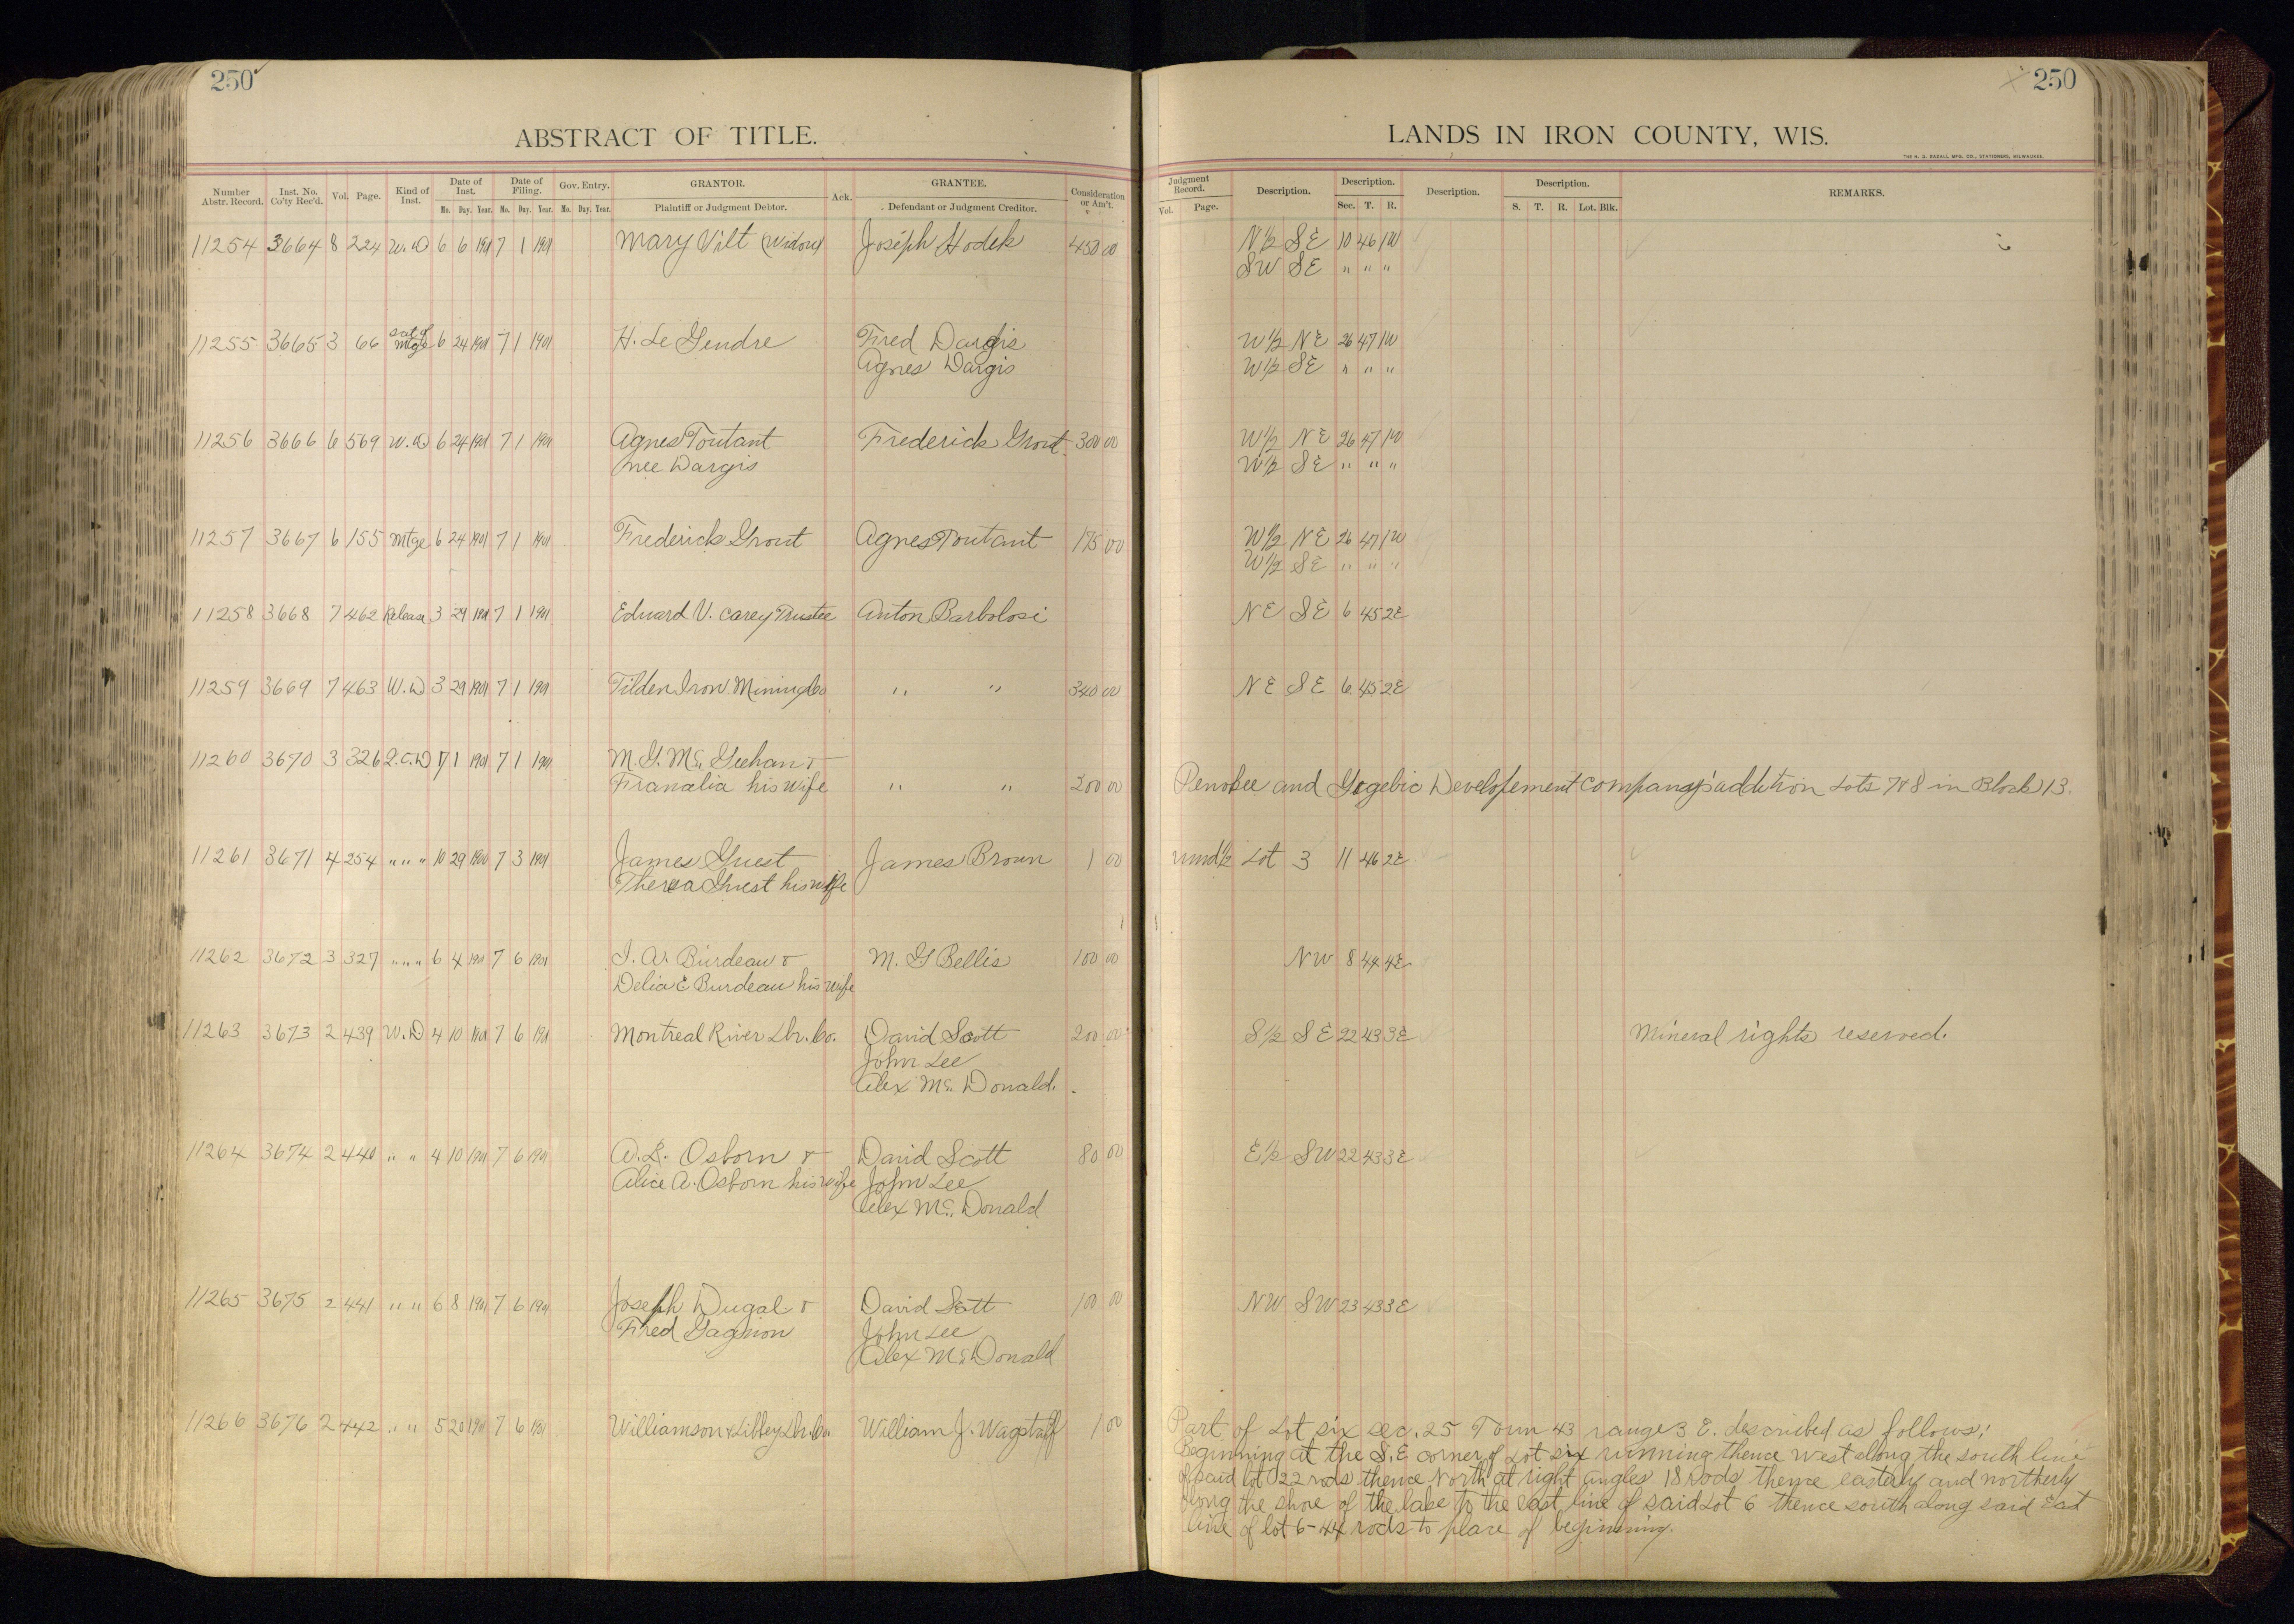 250
250
ABSTRACT OF TITLE.
LANDS IN IRON COUNTY, WIS.
THE H. G. RAZALL MFG. CO., STATIONERS, MILWAUKEE.
Number Abstr. Record. Inst. No. Co'ty Rec'd. Vol. Page. Kind of Inst. Date of Inst. Mo. Day. Year. Date of Filing. Mo. Day. Year. Gov. Entry. Mo. Day. Year. GRANTOR. Plaintiff or Judgment Debtor. Ack. GRANTEE. Defendant or Judgment Creditor. Consideration or Am't. Judgment Record. Vol. Page. Description. Description. Sec. T. R. Description. Description. S. T. R. Lot. Blk. REMARKS.
11254 3664 8 224 W.D 6 6 1901 7 1 1901 Mary Vilt (Widow) Joseph Hodek 450 00 N½ SE 10 46 1W
SW SE " " "
11255 3665 3 66 Sat of Mtge 6 24 1901 7 1 1901 H. Le Gendre Fred Dargis W½ NE 26 47 1W
Agnes Dargis W½ SE " " "
11256 3666 6 569 W.D 6 24 1901 7 1 1901 Agnes Toutant Frederick Grout 300 00 W½ NE 26 47 1W
nee Dargis W½ SE " " "
11257 3667 6 155 Mtge 6 24 1901 7 1 1901 Frederick Grout Agnes Toutant 175 00 W½ NE 26 47 1W
W½ SE " " "
11258 3668 7 462 Release 3 29 1901 7 1 1901 Eduard V. Carey Trustee Anton Barbolosi NE SE 6 45 2E
11259 3669 7 463 W.D 3 29 1901 7 1 1901 Tilden Iron Mining Co " " 340 00 NE SE 6 45 2E
11260 3670 3 326 Q.C.D 7 1 1901 7 1 1901 M. G. Mc Geehan &
Franalia his wife " " 200 00 Penokee and Gogebic Developement Company's addition Lots 7&8 in Block 13.
11261 3671 4 254 " " " 10 29 1900 7 3 1901 James Guest James Broun 1 00 und½ Lot 3 11 46 2E
Theresa Guest his wife
11262 3672 3 327 " " " 6 4 1901 7 6 1901 I. A. Burdeau & M. G Bellis 100 00 NW 8 44 4E
Delia E Burdeau his wife
11263 3673 2 439 W.D 4 10 1901 7 6 1901 Montreal River Lbr. Co. David Scott 200 00 S½ SE 22 43 3E Mineral rights reserved.
John Lee
Alex Mc Donald.
11264 3674 2 440 " " 4 10 1901 7 6 1901 A. L. Osborn & David Scott 80 00 E½ SW 22 43 3E
Alice A. Osborn his wife John Lee
Alex Mc Donald
11265 3675 2 441 " " 6 8 1901 7 6 1901 Joseph Dugal & David Scott 100 00 NW SW 23 43 3E
Fred Gagnon John Lee
Alex Mc Donald
11266 3676 2 442 " " 5 20 1901 7 6 1901 Williamson & Libbey Lbr. Co William J. Wagstaff 1 00 Part of Lot six sec. 25 Town 43 range 3 E. described as follows;
Beginning at the S.E corner of Lot six running thence west along the south line
of said lot 22 rods thence North at right angles 18 rods thence easterly and northerly
along the shore of the lake to the east line of said Lot 6 thence south along said East
line of lot 6-44 rods to place of beginning.